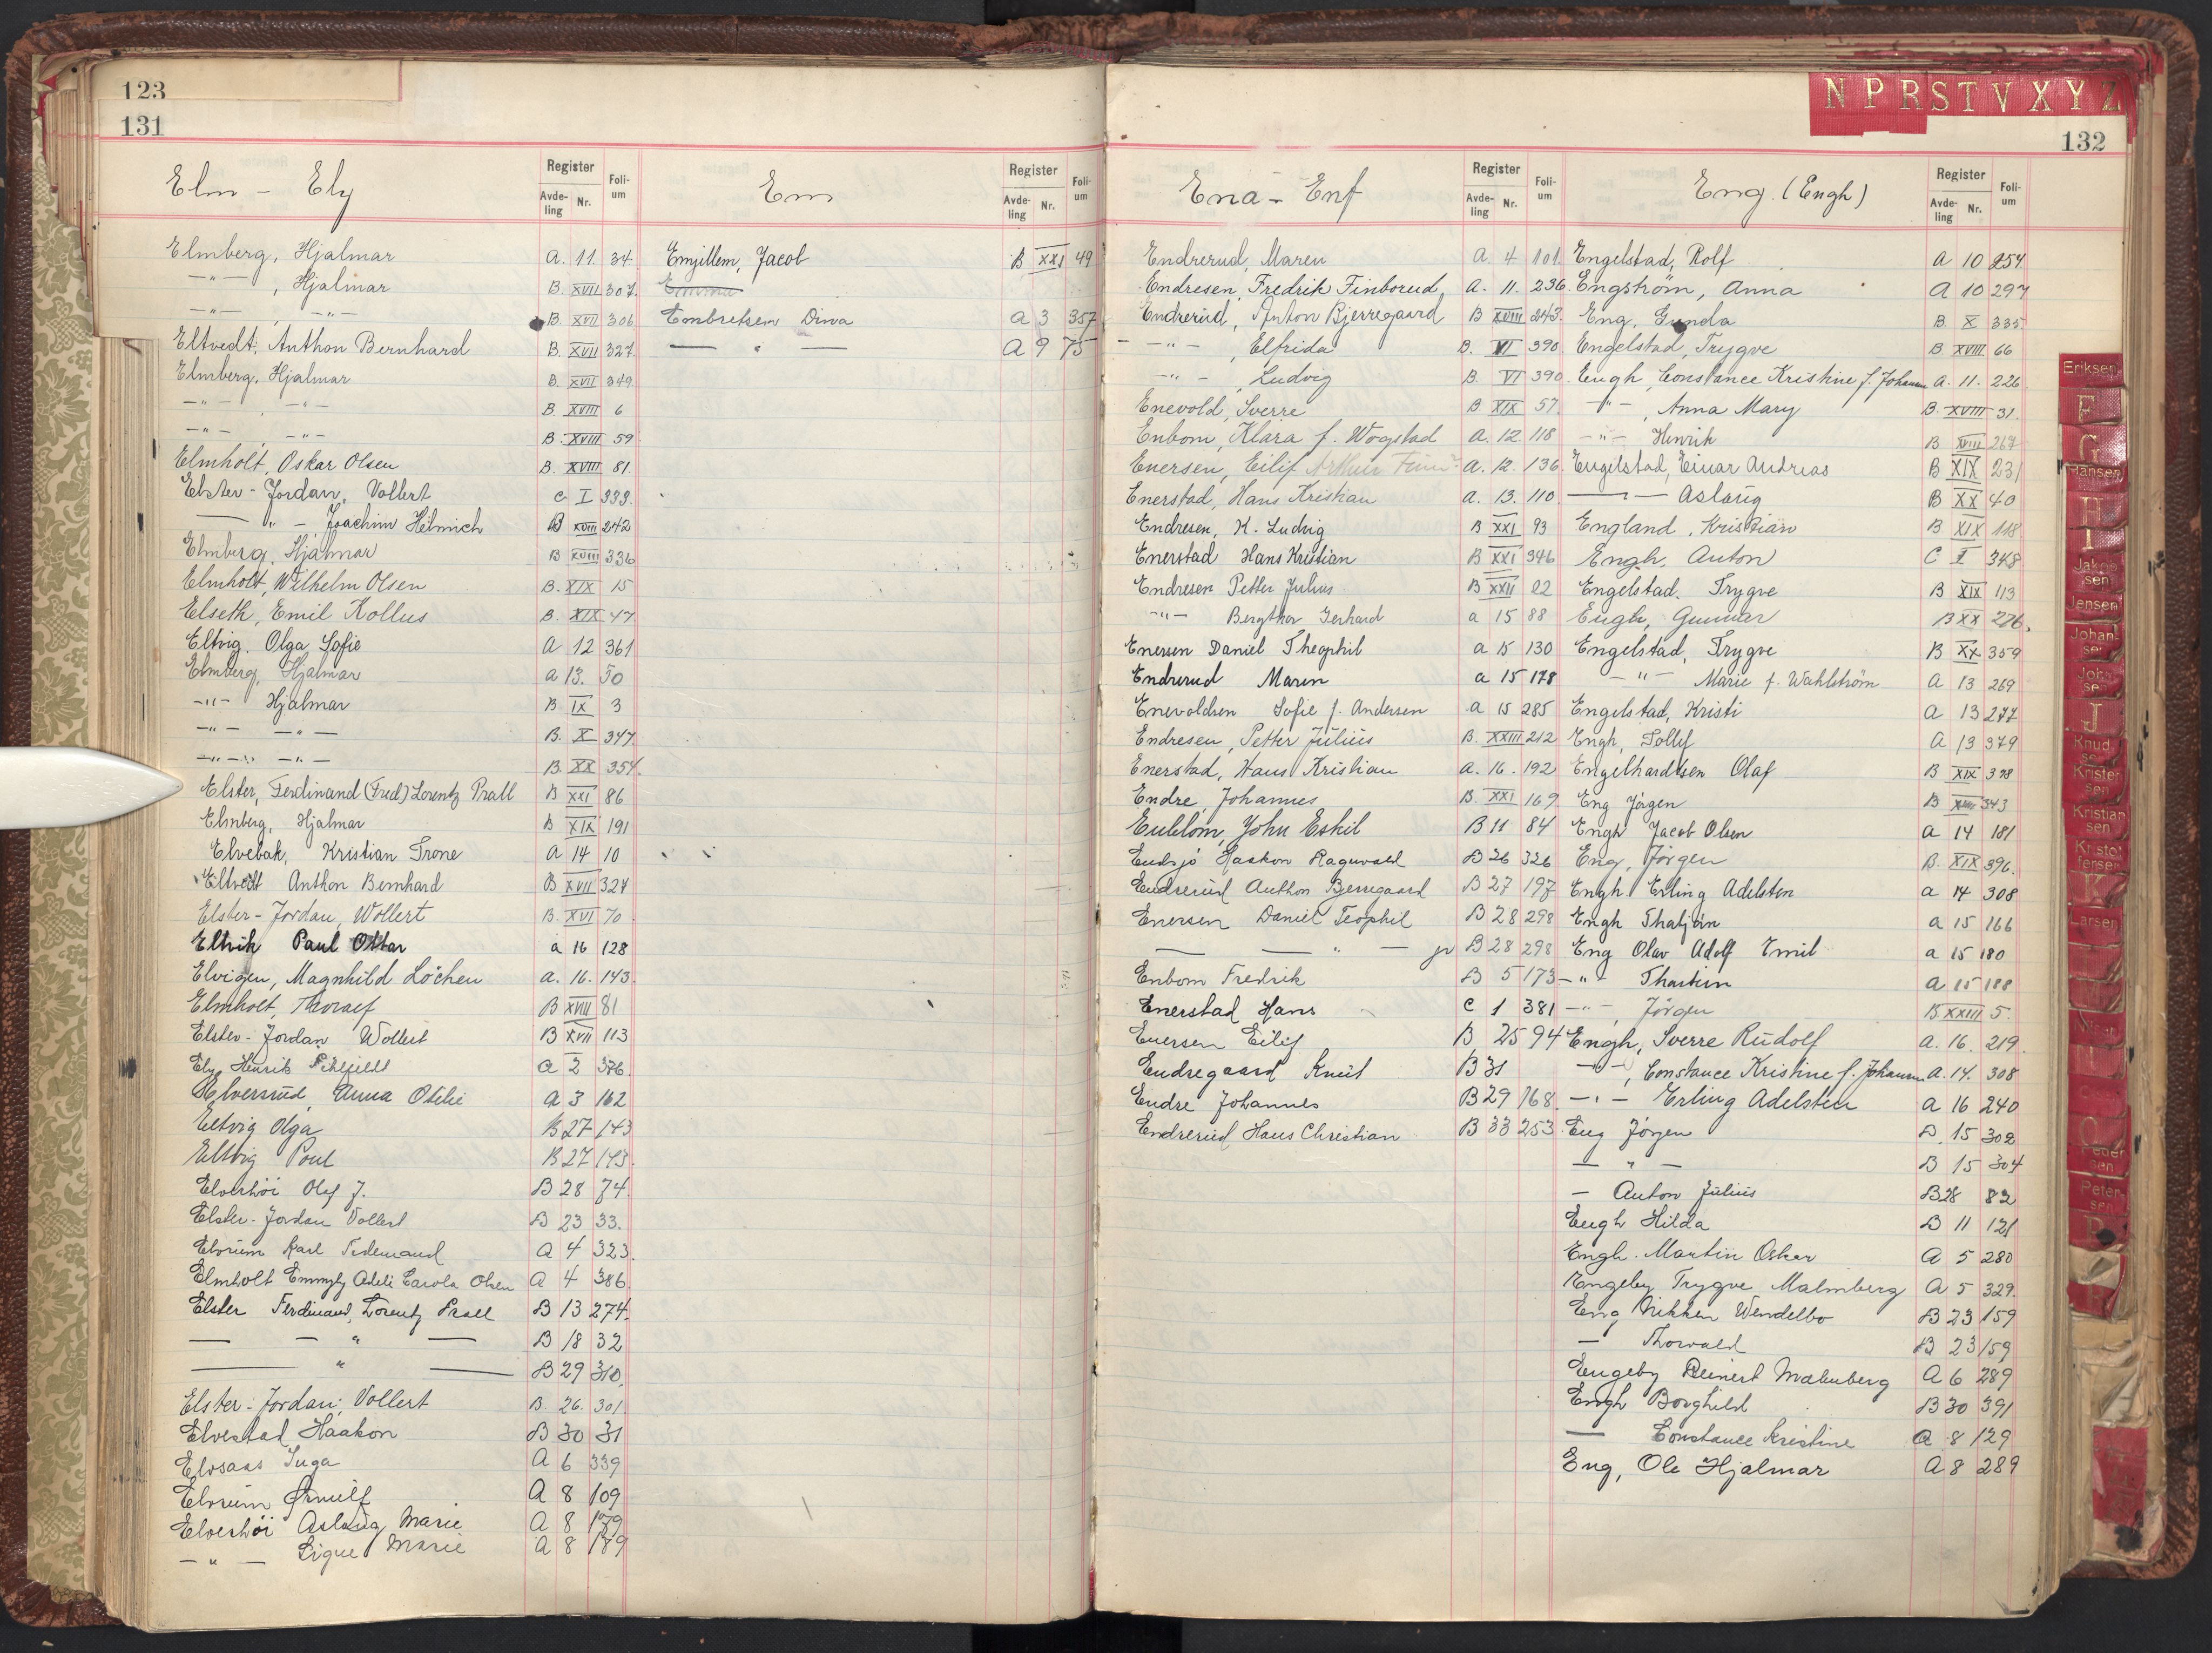 123
131
Elm - Ely
Register
Avde-ling Nr.
Foli-um
Elmberg, Hjalmar A. 11. 34
-"- , Hjalmar B. XVII 307.
-"- -"- B. XVII 306
Eltvedt, Anthon Bernhard B. XVII 327.
Elmberg, Hjalmar B. XVII 349
-"- -"- B. XVIII 6
-"- -"- B. XVIII 59
Elmholt, Oskar Olsen B. XVIII 81.
Elster-Jordan, Vollert C I 333.
-"- Joachim Hilmich B XVIII 242
Elmberg, Hjalmar B XVIII 336
Elmholt, Wilhelm Olsen B. XIX 15
Elseth, Emil Kollus B. XIX 47
Eltvig, Olga Sofie A 12 361
Elmberg, Hjalmar a 13. 50
-"- Hjalmar B. IX 3
-"- -"- B. X 347.
-"- -"- B. XX 354.
Elster, Ferdinand (Fred) Lorentz Prall B XXI 86
Elmberg, Hjalmar B XIX 191
Elvebak, Kristian Trone A 14 10
Eltvedt Anthon Bernhard B XVII 327
Elster-Jordan, Wollert B. XVI 70
Eltvik Paul Ottar a 16 128
Elvigen, Magnhild Löchen a. 16. 143.
Elmholt, Thoralf B XVIII 81
Elster-Jordan Wollert B XVII 113
Ely, Henrik a 2 376.
Elversrud, Anna Otilie a 3 162
Eltvig Olga B 27 143
Eltvig Poul B 27 143.
Elverhöi Olaf J. B 28 74.
Elster-Jordan Vollert B 23 33.
Elvrum Karl Tidemand A 4 323.
Elmholt Emmyly Adele Carola Olsen A 4 386.
Elster Ferdinand, Lorentz Prall B 13 274.
— " — B 18 32
— " — B 29 310.
Elster-Jordan, Vollert B. 26. 301
Elvestad Haakon B 30 31
Elvsaas Inga A 6 339
Elvrum Ørnulf A 8 109
Elverhöi Aslaug Marie A 8 179
-"- Signe Marie A 8 189
Em
Register
Avde-ling Nr.
Foli-um
Emjillem, Jacob B XXI 49
Embretsen Dina A 3 357
— " — A 9 75
N P R S T V X Y Z
132
Ena - Enf
Register
Avde-ling Nr.
Foli-um
Endrerud, Maren A. 4 101.
Endresen, Fredrik Finborud, A. 11. 236.
Endrerud, Anton Bjerregaard B XVIII 243.
-"- , Elfrida B. VI 390
-"- , Ludvig B. VI 390.
Enevold, Sverre B XIX 57.
Enbom, Klara f. Wogstad A. 12. 118
Enersen, Eilif Arthur A. 12. 136.
Enerstad, Hans Kristian A. 13. 110
Endresen, K. Ludvig B XXI 93
Enerstad Hans Kristian B XXI 346
Endresen Petter Julius B XXII 22
-"- Bergthor Gerhard a 15 88
Enersen Daniel Theophil a 15 130
Endrerud Maren a 15 178
Enevoldsen Sofie f. Andersen a 15 285
Endresen, Petter Julius B. XXIII 212
Enerstad, Hans Kristian a. 16. 192
Endre, Johannes B. XXI 169.
Enblom, John Eskil B 11 84
Endsjö Haakon Ragnvald B 26 326
Endrerud Anthon Bjerregaard B 27 197
Enersen Daniel Teophil B 28 298
— — " — jr B 28 298
Enbom Fredrik B 5 173
Enerstad Hans C 1 381
Enersen Eilif B 25 94
Endregaard Knut B 31
Endre Johannes B 29 168.
Endrerud, Hans Christian B 33 253.
Eng. (Engh)
Register
Avde-ling Nr.
Foli-um
Engelstad, Rolf A 10 254.
Engström, Anna A 10 297
Eng, Gunda B. X 335
Engelstad, Trygve B. XVIII. 66
Engh, Constance Kristine f. Johansen A. 11. 226
-"- , Anna Mary B. XVIII 31.
-"- Henrik B XVIII 267
Engelstad, Einar Andreas B XIX 231
—"— Aslaug B XX 40
England, Kristian B XIX 118
Engh, Anton C I 348
Engelstad, Trygve B XIX 113
Engh, Gunnar B XX 276.
Engelstad, Trygve B XX 359
-"- Marie f. Wahlström A 13 269
Engelstad, Kristi a 13 277
Engh, Tollef A 13 379
Engelhardtsen Olaf B XIX 378
Eng Jörgen B XVIII 343
Engh Jacob Olsen a 14 181
Eng, Jörgen B. XIX 396.
Engh Erling Adelsten a 14 308
Engh Thatjörn a 15 166
Eng Olav Adolf Emil a 15 180
-"- a 15 188
-"- , Jörgen B. XXIII 5.
Engh, Sverre Rudolf a. 16. 219.
-"- , Constance Kristine f. Johansen a. 14. 308
-"- Erling Adelsten a 16 240
Eng Jörgen B. 15 302
— " — B 15 304
— Anton Julius B 28 82
Engh Hilda B 11 121
Engh. Martin Oskar A 5 280
Engeby Trygve Malmberg A 5 329.
Eng Nikken Wendelbo B 23 159
— Thorvald B 23 159
Engeby Reinert Malmberg A 6 289
Engh Borghild B 30 391
— Constance Kristine A 8 129
Eng, Ole Hjalmar A 8 289
Eriksen
F
G
Hansen
H
I
Jakobsen
Jensen
Johansen
Johnsen
J
Knudsen
Kristensen
Kristiansen
Kristoffersen
K
Larsen
O
Pedersen
Petersen
P